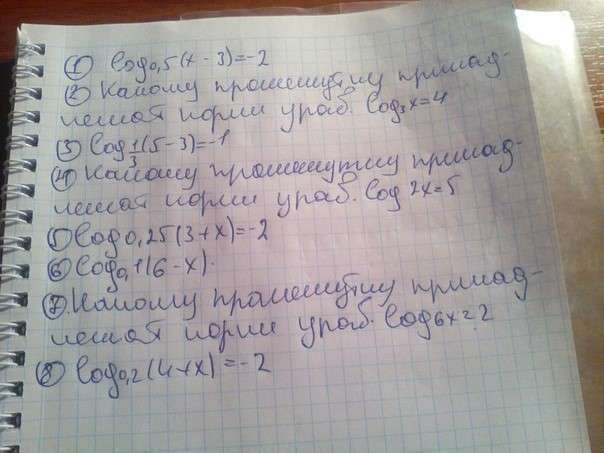 ① log₀,₅(x-3)=-2
② Какому промежутку принад-
лежат корни урав. log₃x=4
③ log 1/3(5-3)=-1
④ Какому промежутку принад-
лежат корни урав. log 2x=5
⑤ log 0,25(3+x)=-2
⑥ log₀,1(6-x).
⑦. Какому промежутку принад-
лежат корни урав. log₆x=2
⑧ log₀,₂(4+x)=-2